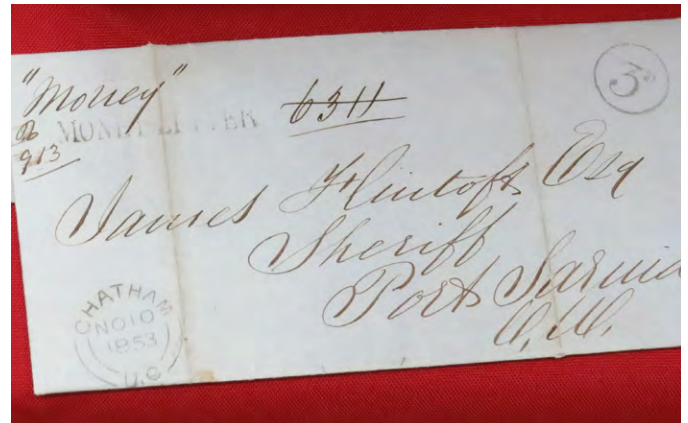 "Money"
MONEY LETTER
6311
3
913
James Flintoft Esq
Sheriff
Port Sarnia
C.W.
CHATHAM
NO 10
1853
U.C